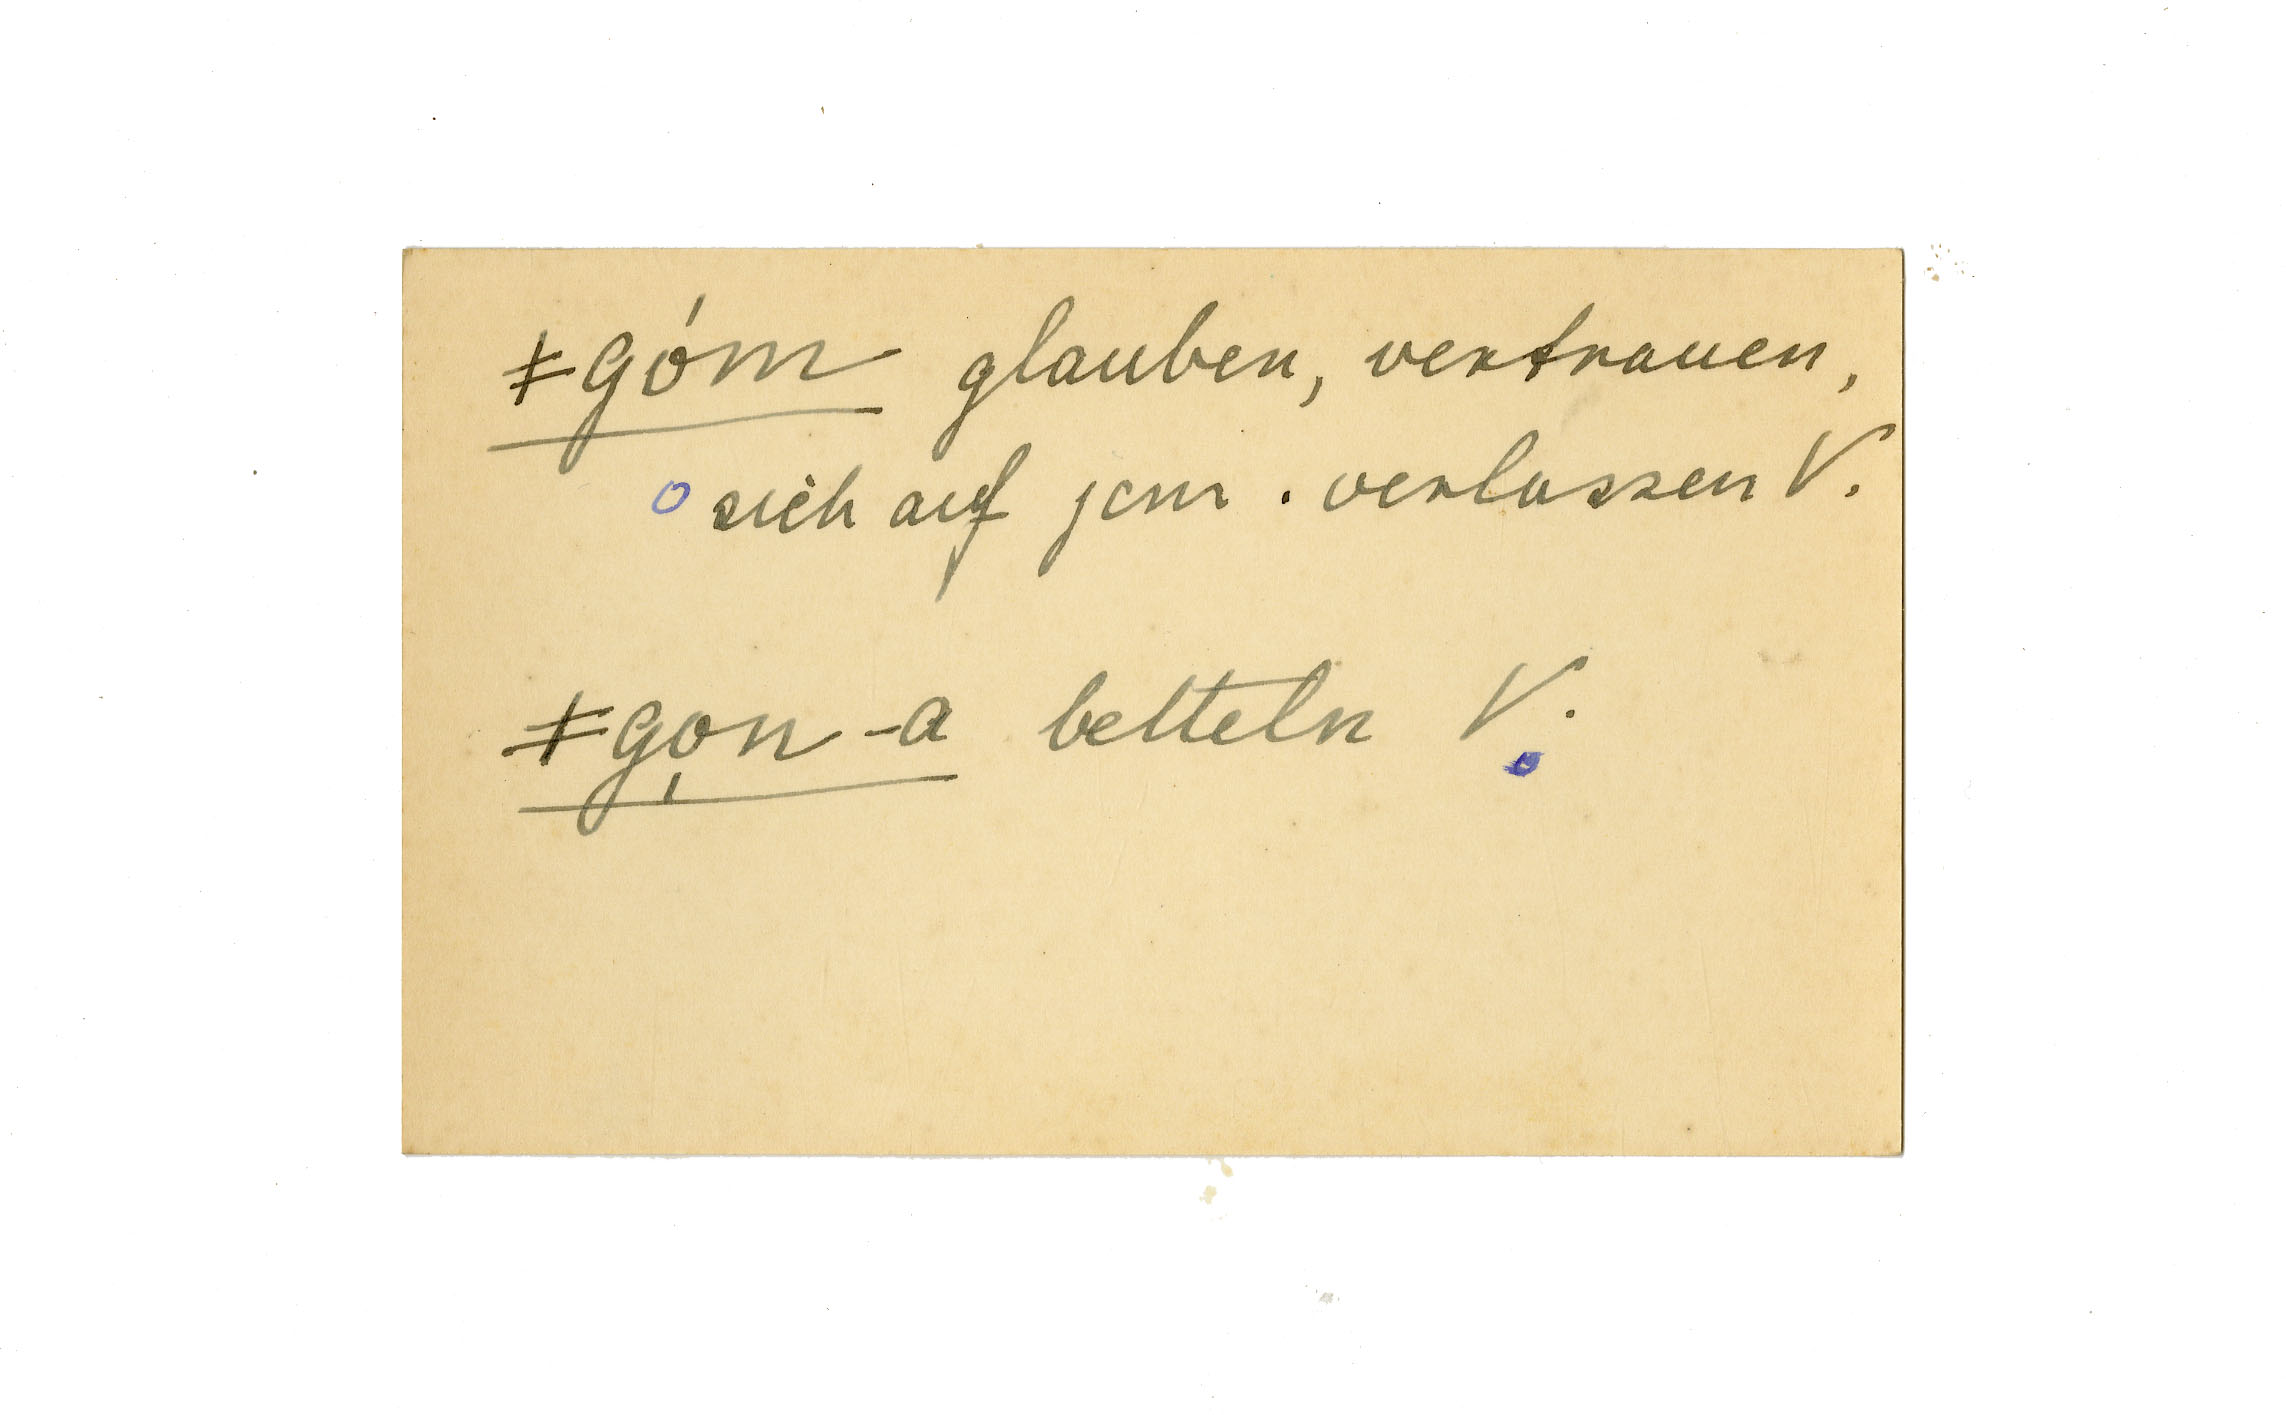 ǂgóm glauben, vertrauen,
sich auf jem. verlassen V.
ǂgo̩n-a betteln V.